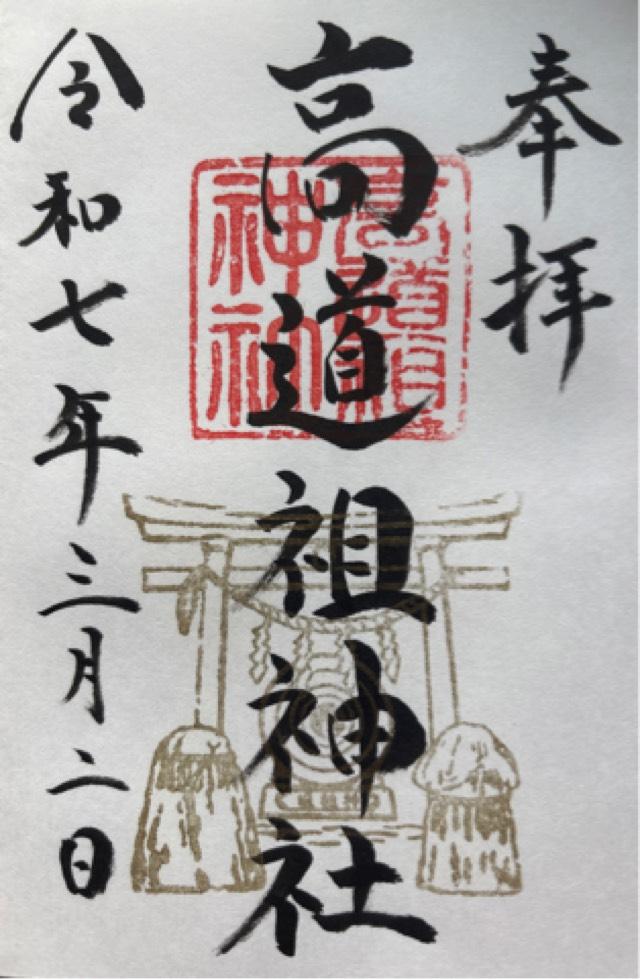 奉拝
高道祖神社
高道祖
神社
令和七年三月二日